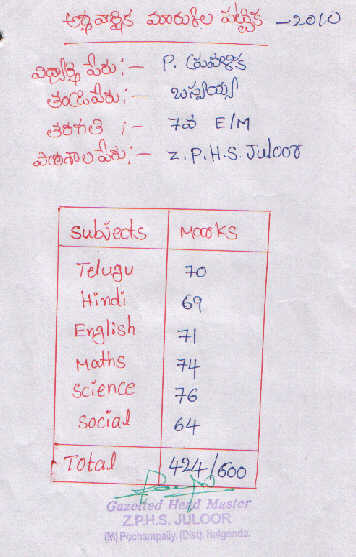 అర్ధవార్షిక మార్కుల పట్టిక - 2010
విద్యార్థి పేరు :- P.
తండ్రి పేరు :-
తరగతి :- 7వ E/M
పాఠశాల పేరు :- Z.P.H.S. Juloor
Subjects Marks
Telugu 70
Hindi 69
English 71
Maths 74
Science 76
Social 64
Total 424/600
Gazetted Head Master
Z.P.H.S. JULOOR
(M) Pochampally (Dist) Nalgonda.